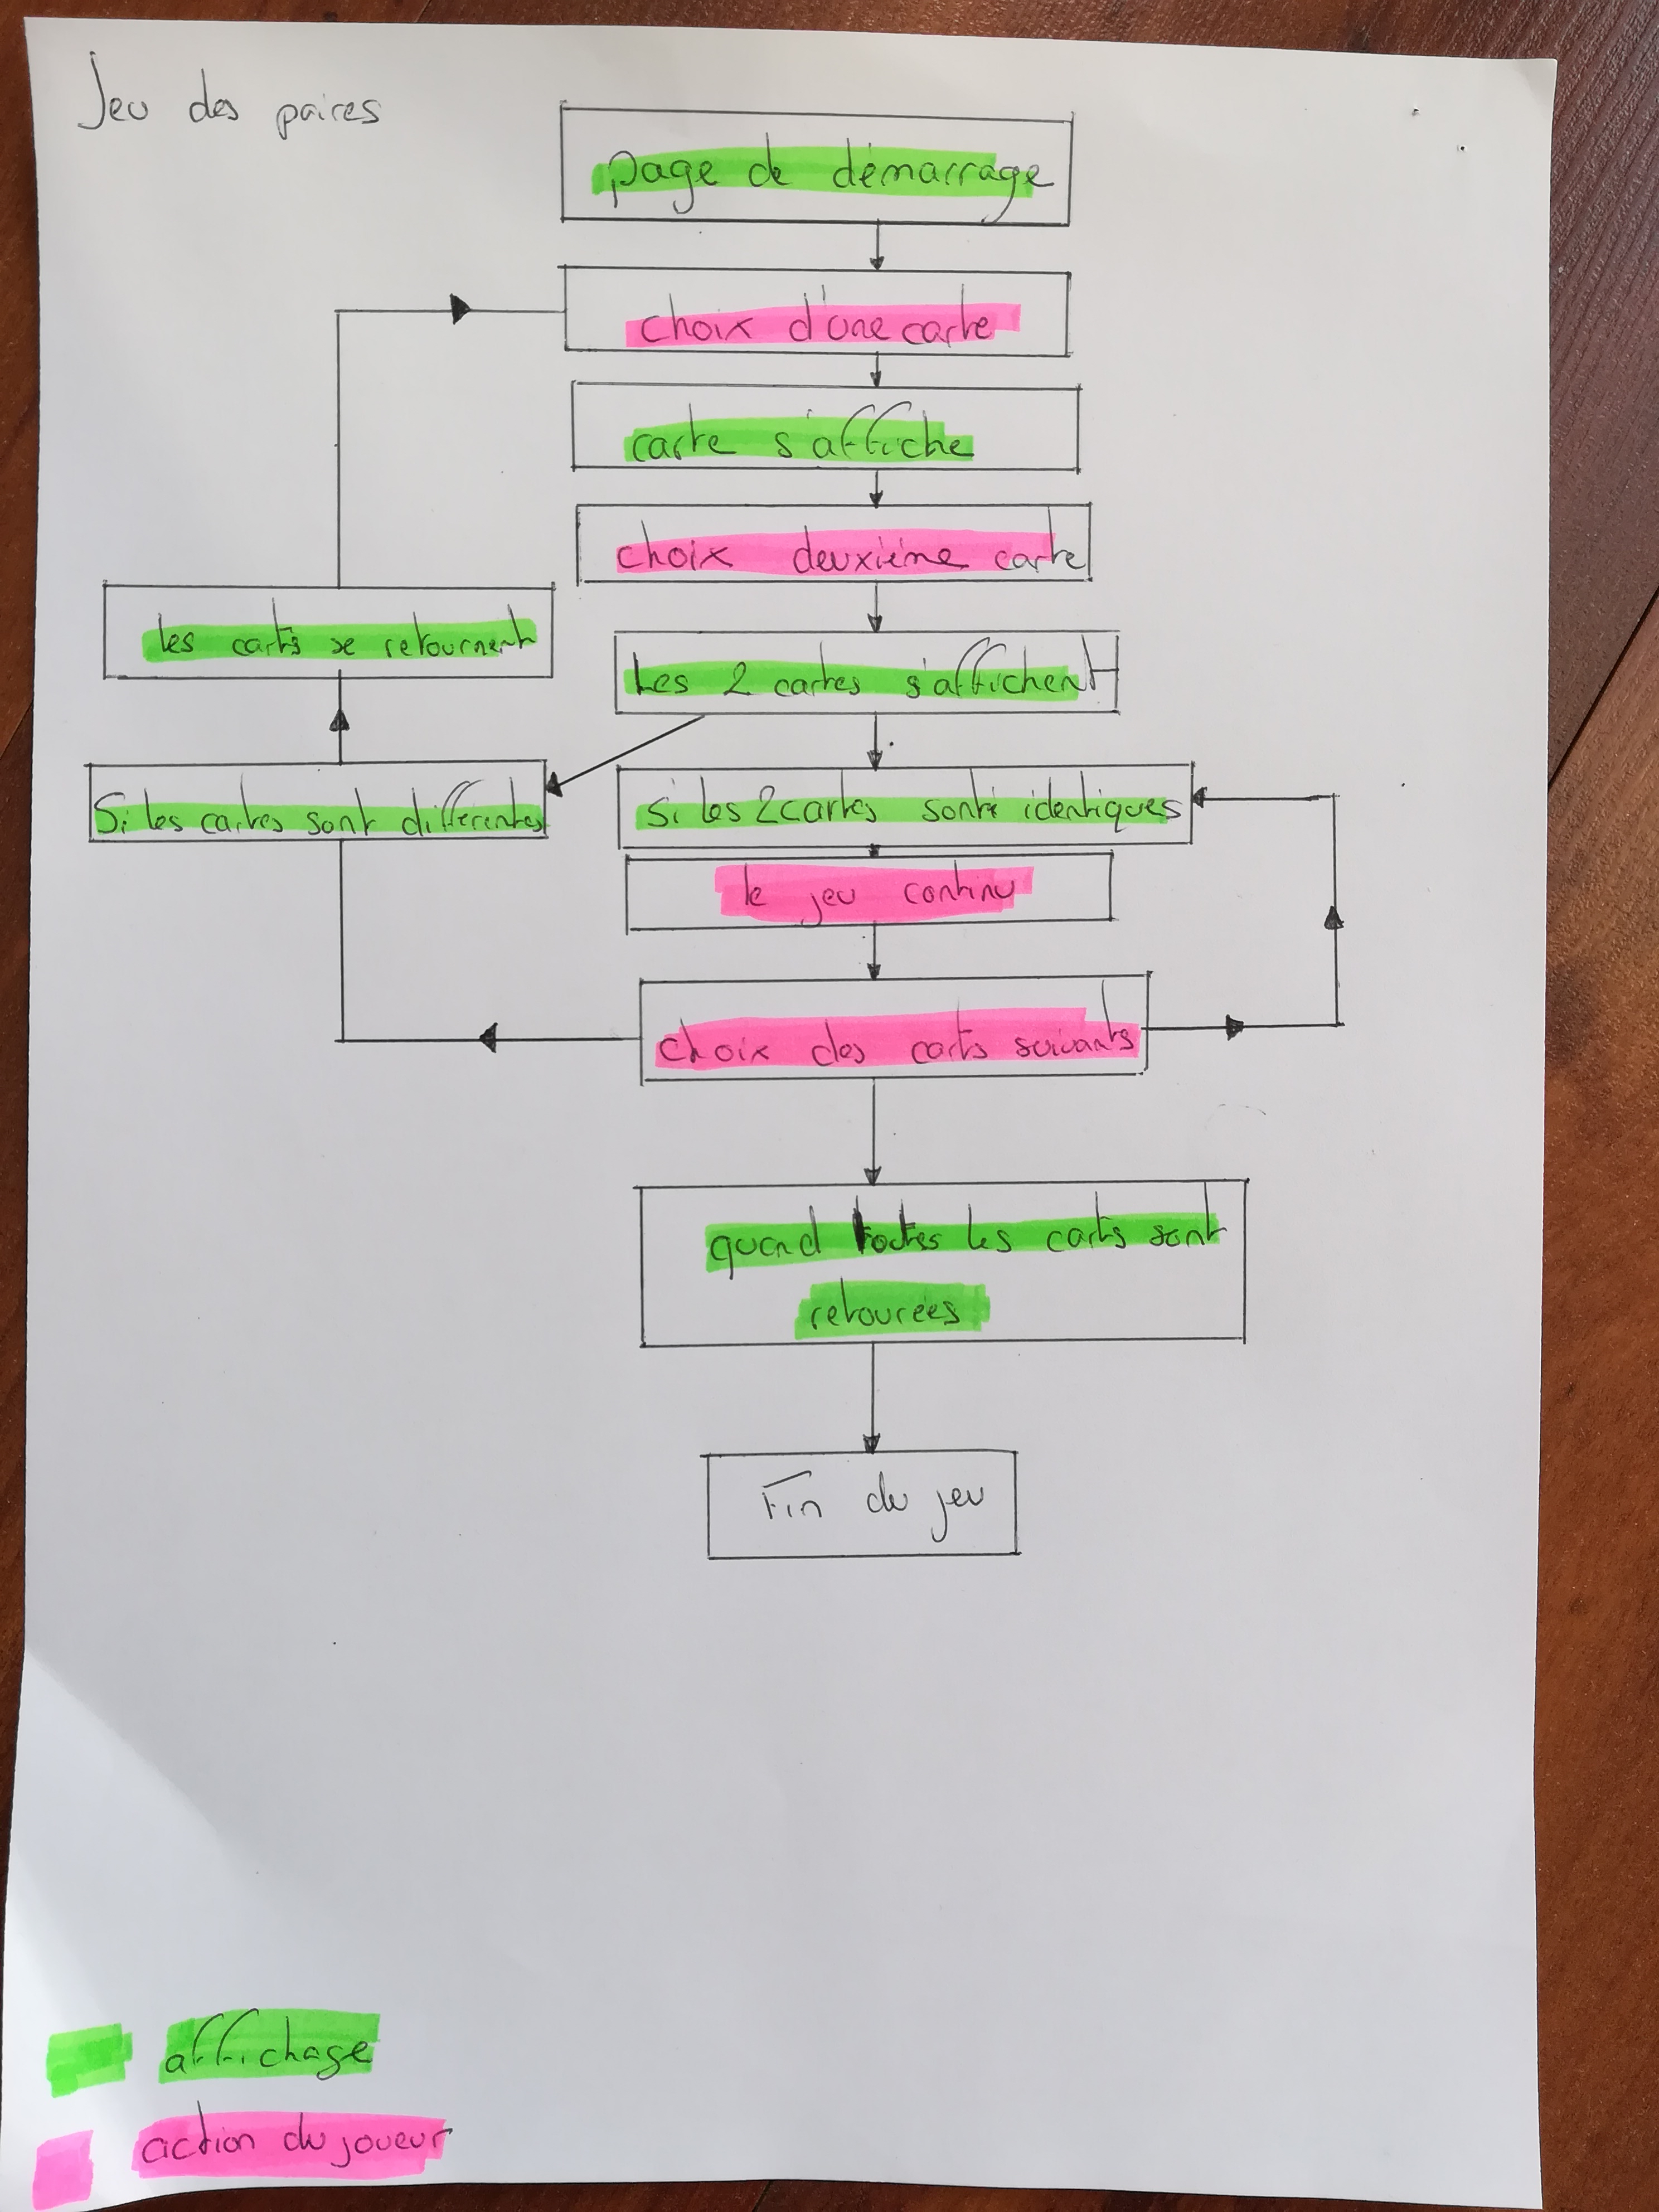 Jeu des paires
page de démarrage
choix d'une carte
carte s'affiche
choix deuxième carte
les carts se retournent
Les 2 cartes s'affichent
Si les cartes sont différentes
Si les 2 cartes sont identiques
le jeu continu
choix des carts suivants
quand toutes les carts sont
retourées
Fin du jeu
affichage
action du joueur